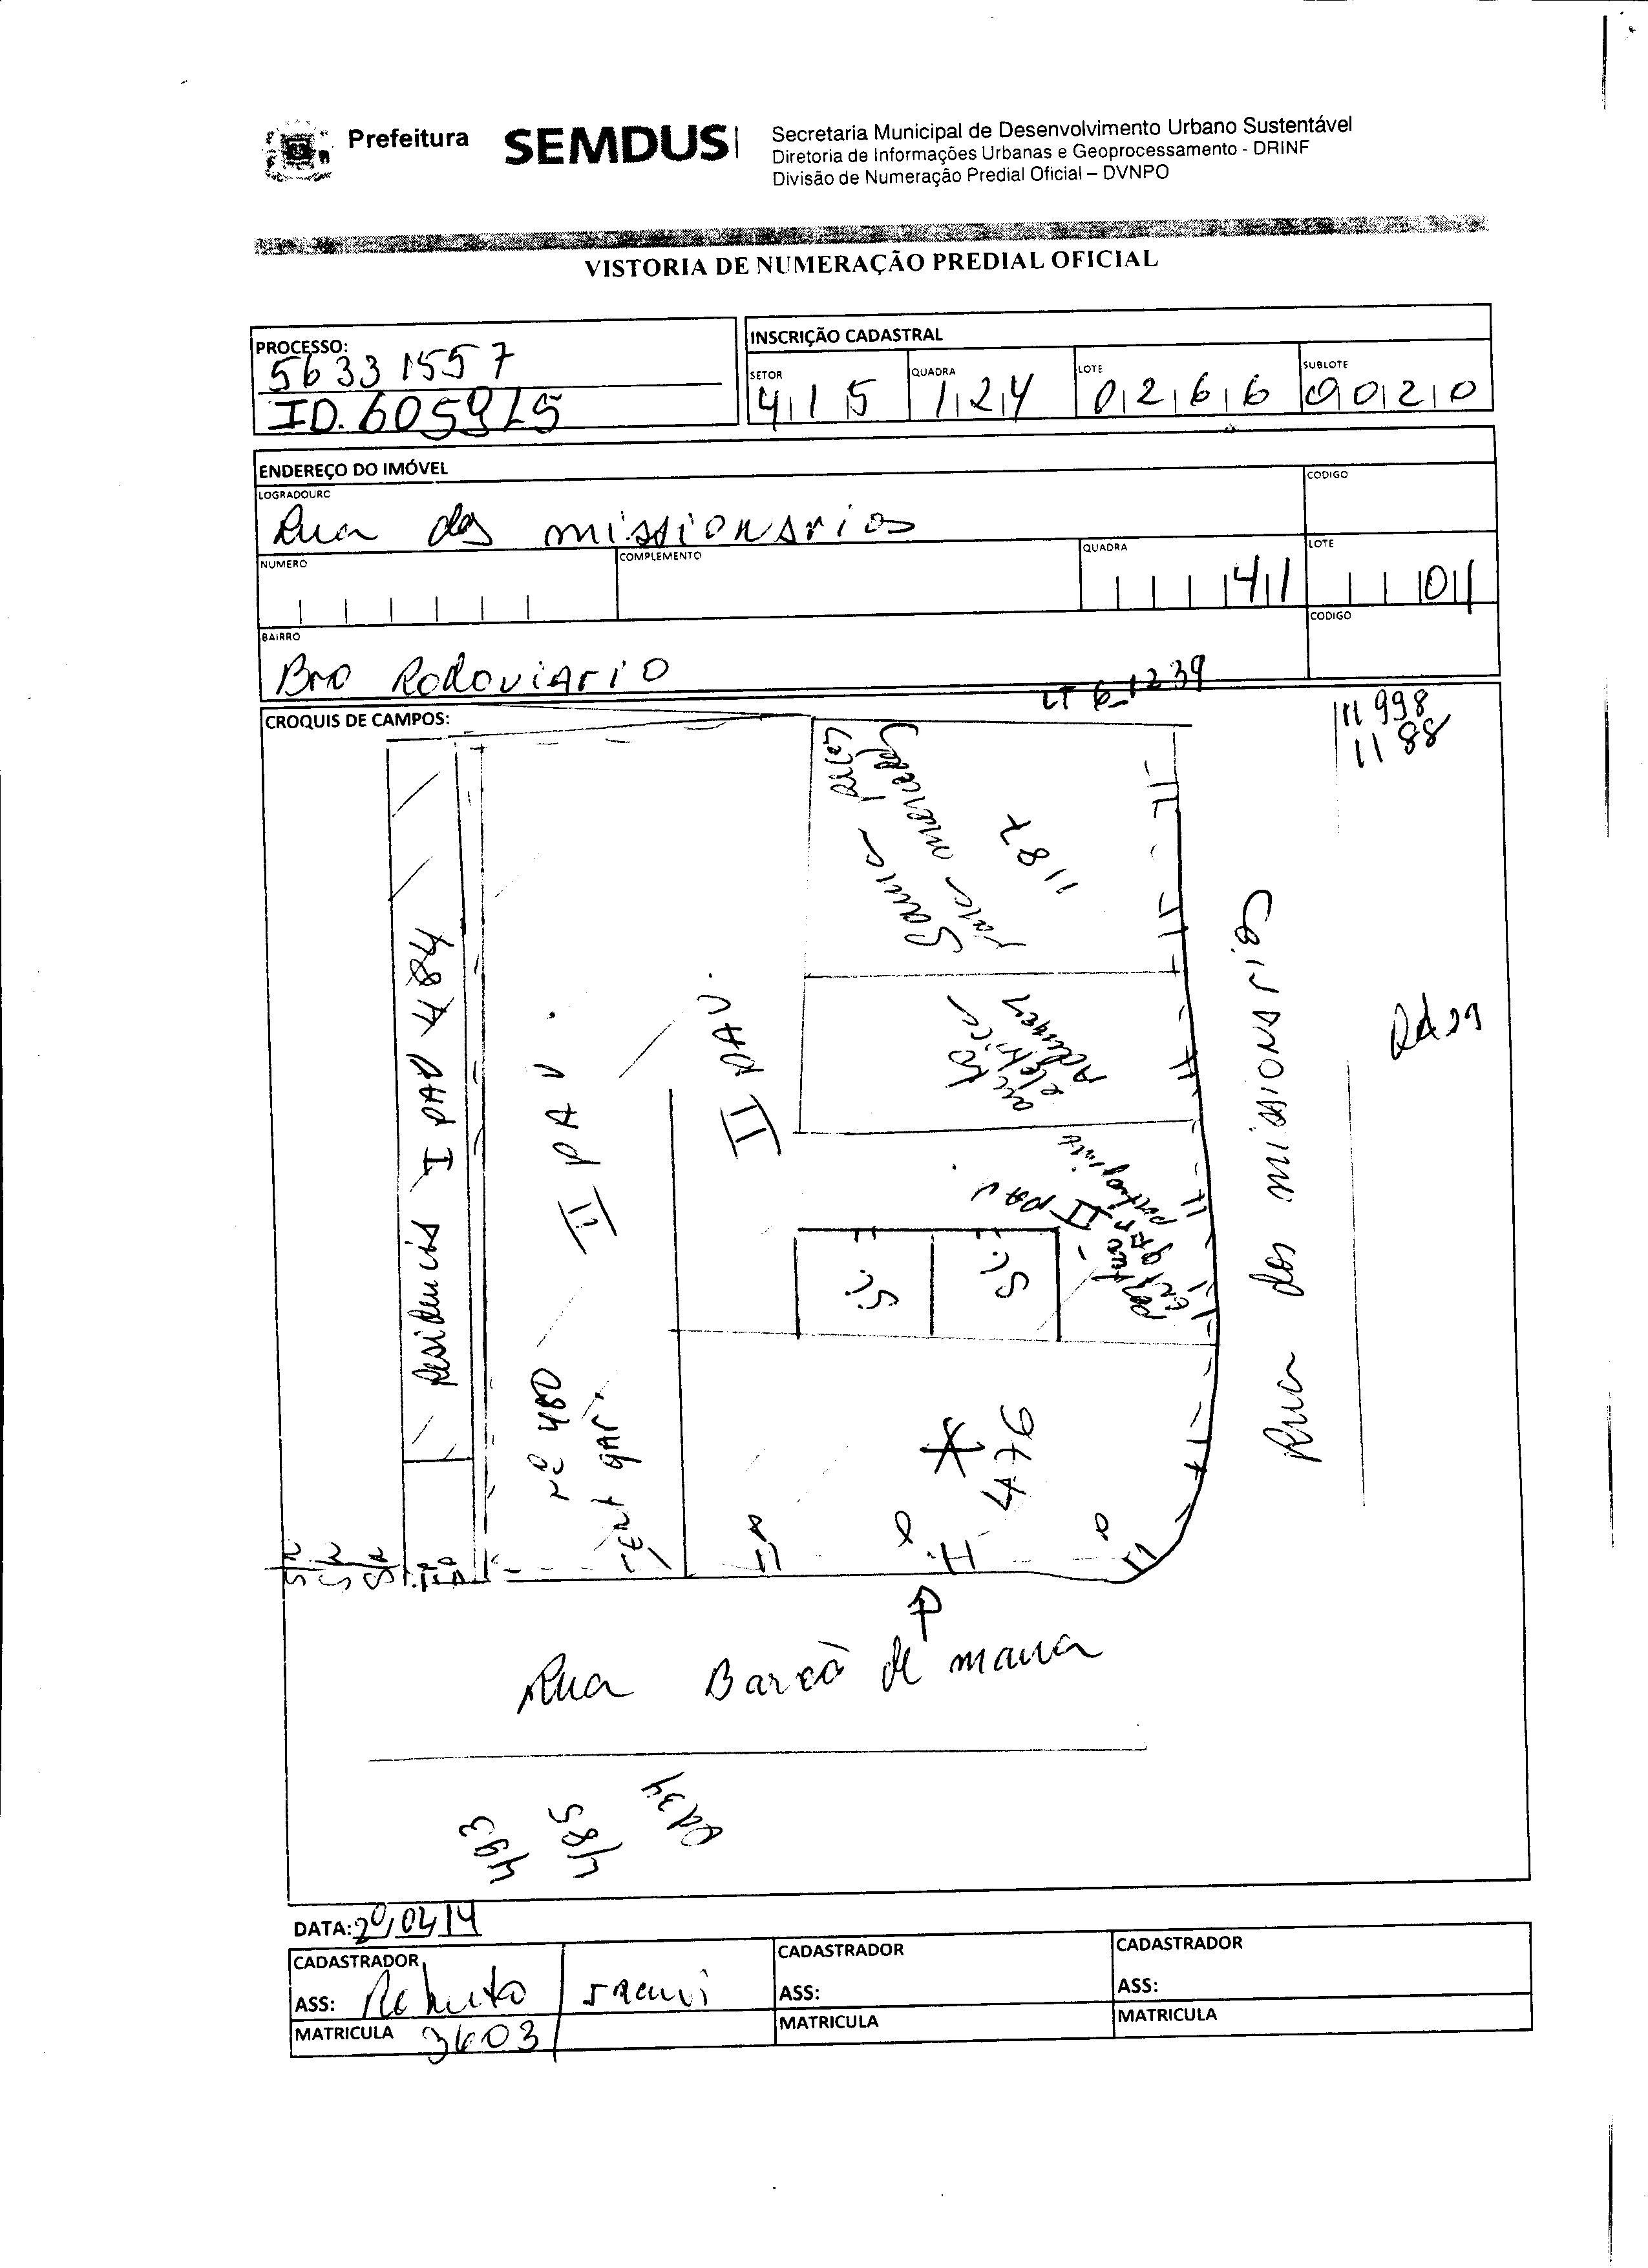 Prefeitura SEMDUS
Secretaria Municipal de Desenvolvimento Urbano Sustentável
Diretoria de Informações Urbanas e Geoprocessamento - DRINF
Divisão de Numeração Predial Oficial – DVNPO
VISTORIA DE NUMERAÇÃO PREDIAL OFICIAL
PROCESSO:
56331557
ID. 605915
INSCRIÇÃO CADASTRAL
SETOR QUADRA LOTE SUBLOTE
415 124 0266 0020
ENDEREÇO DO IMÓVEL
LOGRADOURO CODIGO
Rua dos missionarios
NUMERO COMPLEMENTO QUADRA LOTE
41 01
BAIRRO CODIGO
Bro Rodoviario
LT 6 - 1239
CROQUIS DE CAMPOS:
11 998
11 88
1187
auto
eletrica
II PAV
Residencia I PAV 484
II PAV.
II PAV.
SL
SL
Rua dos missionarios
Qd 29
nº 480
ENt gAr.
476
Rua Barão de maua
493
485
Qd 34
DATA: 20/02/14
CADASTRADOR CADASTRADOR CADASTRADOR
ASS: ASS: ASS:
MATRICULA 3603 MATRICULA MATRICULA